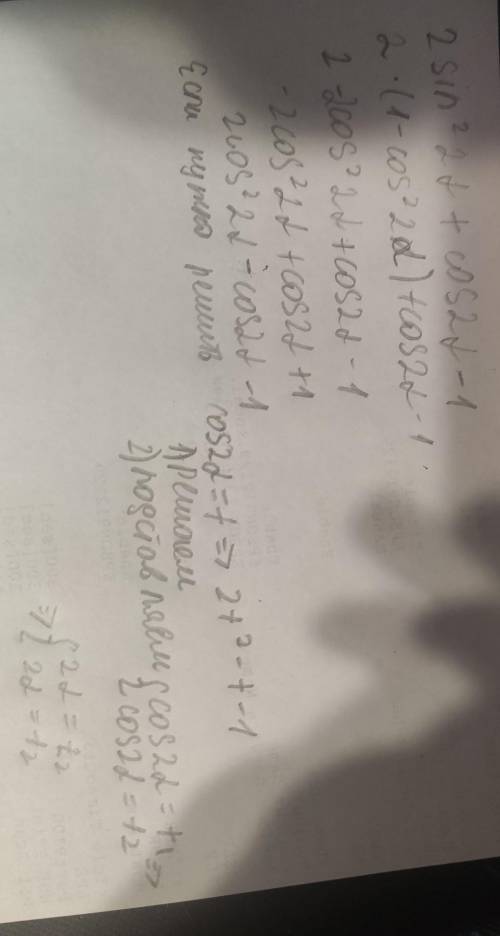 2 sin² 2α + cos2α - 1
2 · (1 - cos² 2α) + cos2α - 1
2 - 2cos² 2α + cos2α - 1
- 2cos² 2α + cos2α + 1
2cos² 2α - cos2α - 1
Если нужно решить cos2α = t => 2t² - t - 1
1) решаем
2) подставляем { cos2α = t1 =>
{ cos2α = t2
=> { 2α = t2
2α = t2